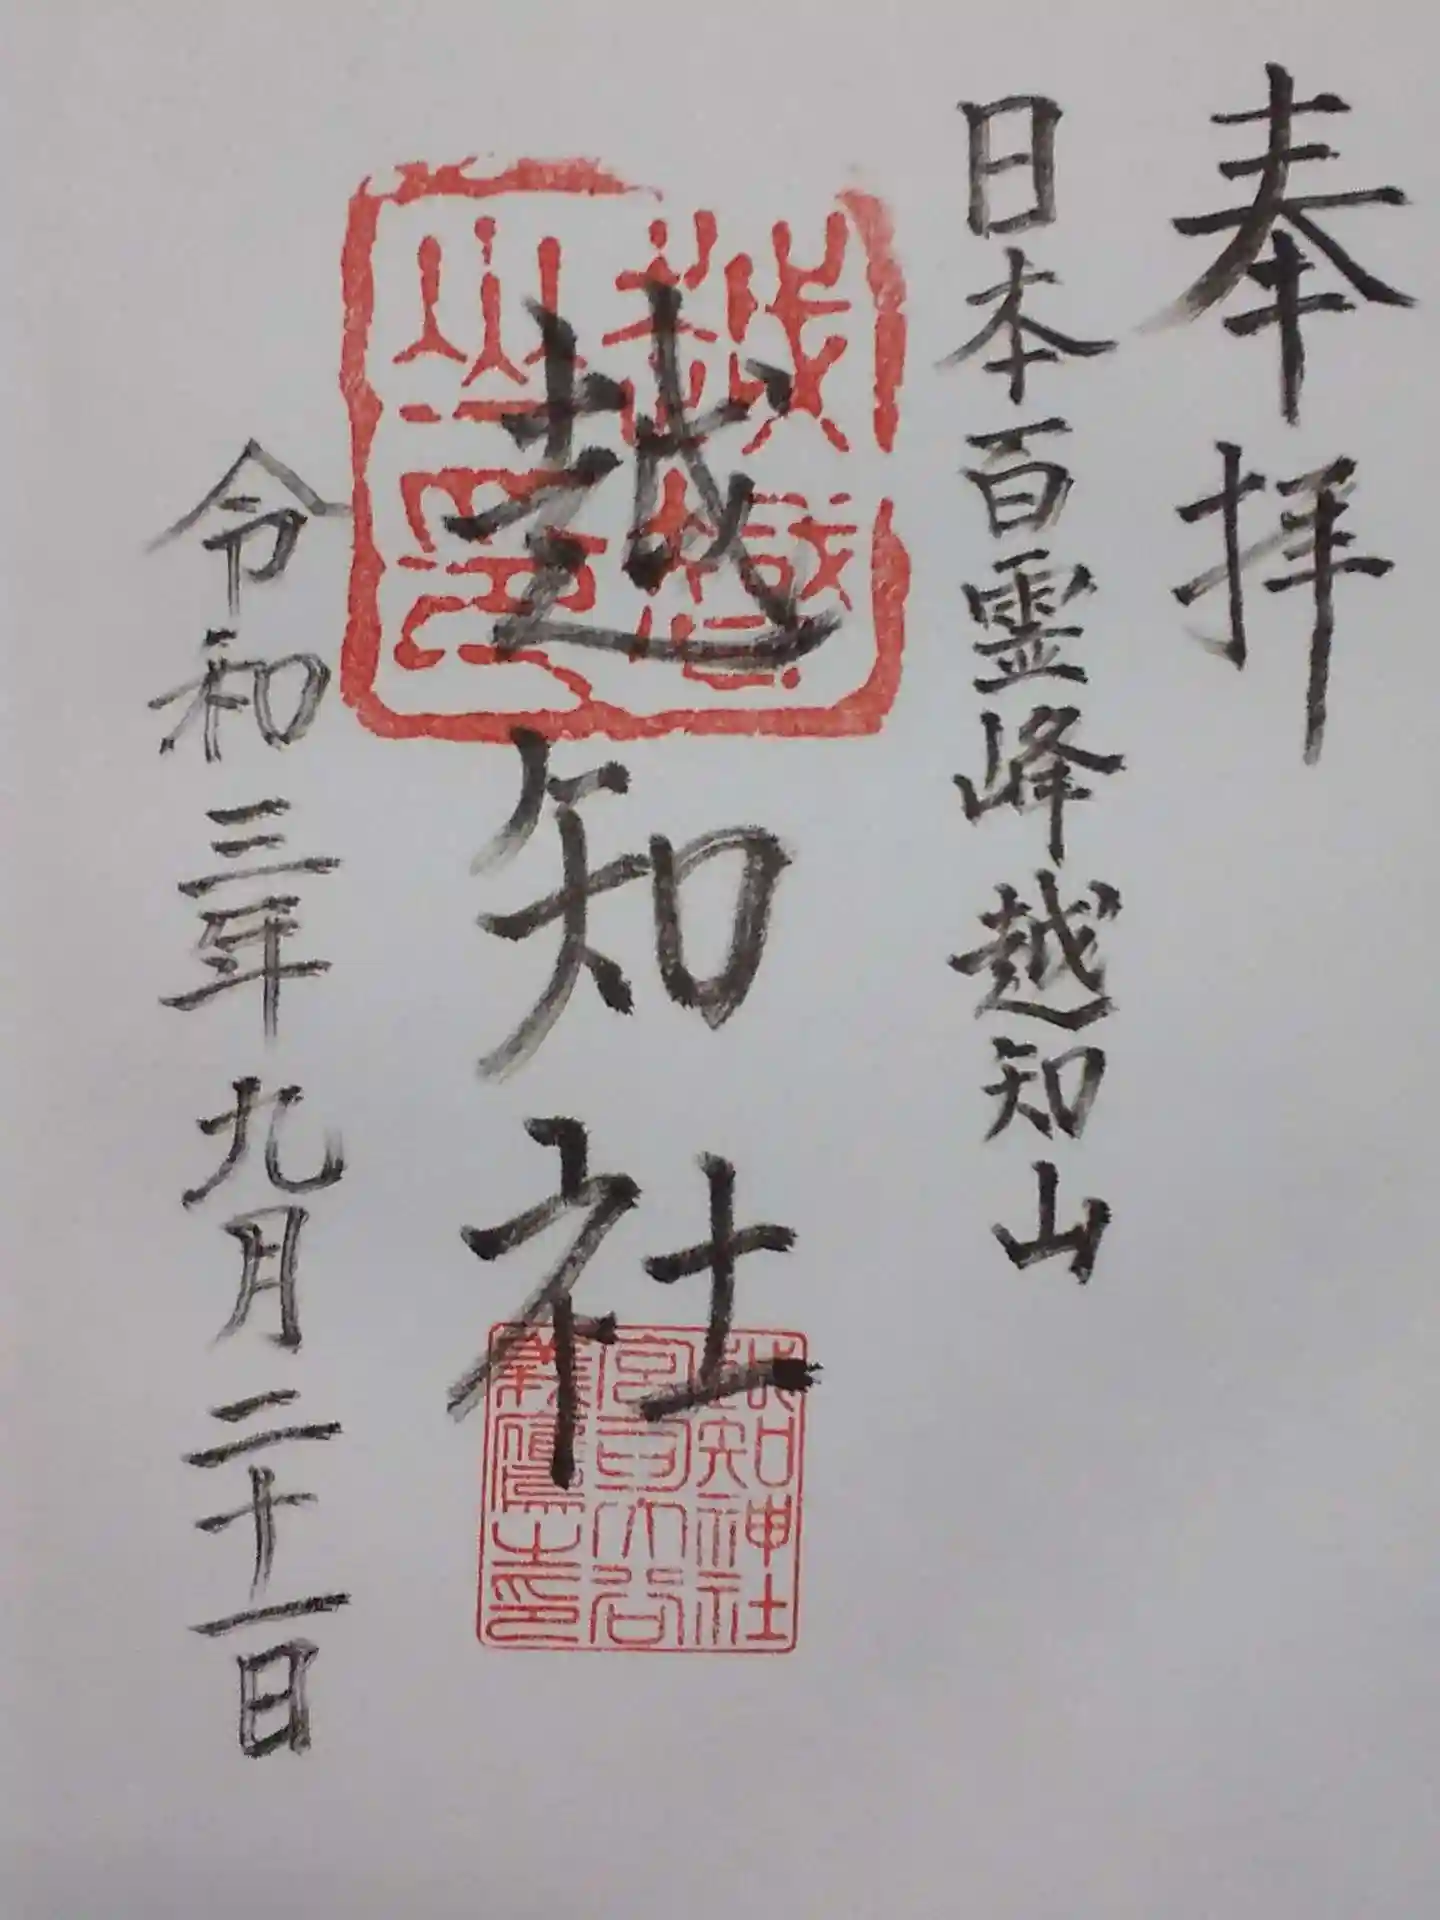 奉拝
日本百霊峰越知山
越知社
越知神社
宮司大谷
義信之印
令和三年九月二十一日